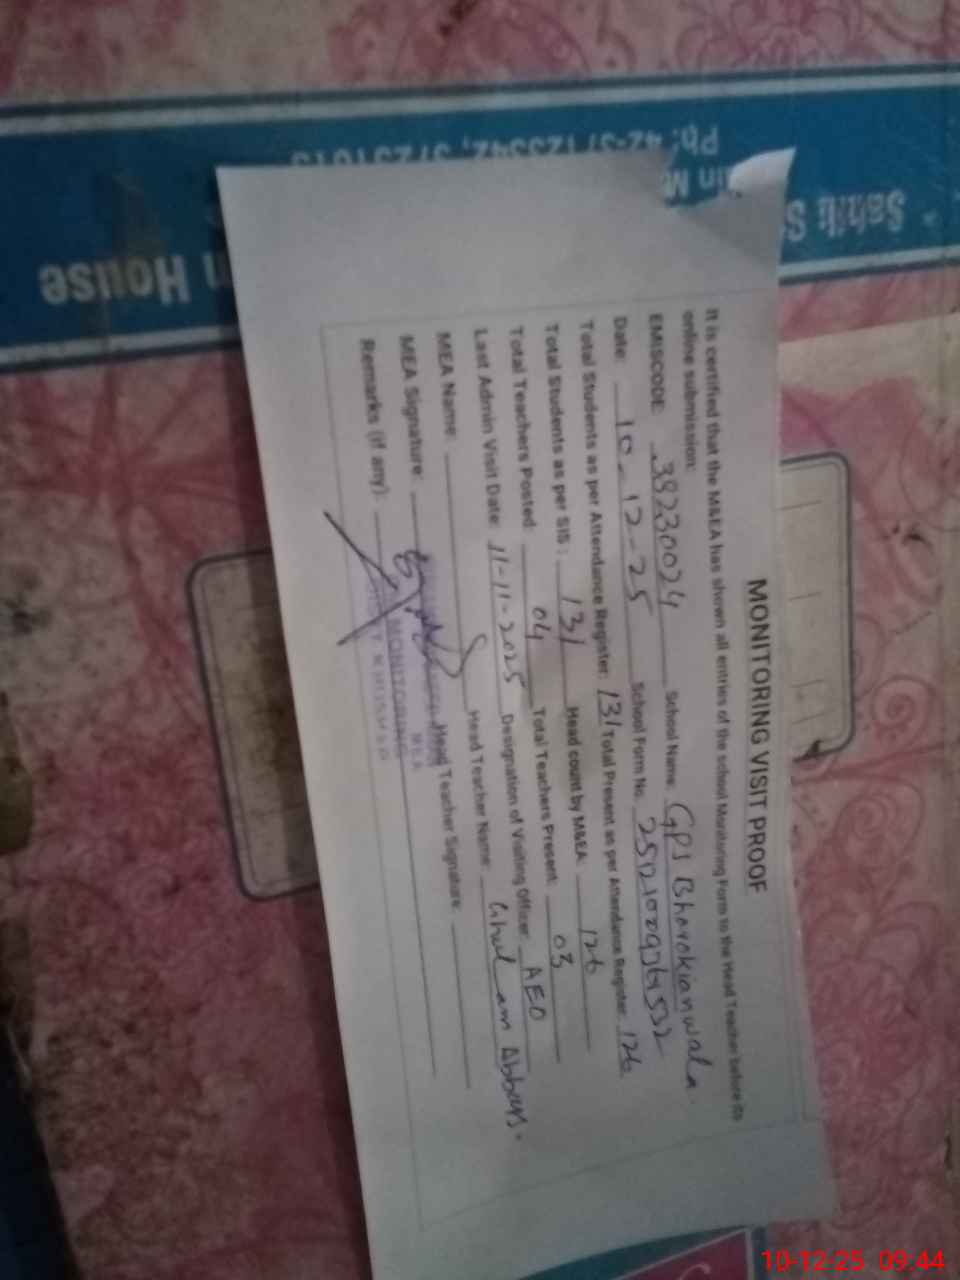 MONITORING VISIT PROOF
It is certified that the M&EA has shown all entries of the school Monitoring Form to the Head Teacher before its
online submission:
EMISCODE: 39230024 School Name: GPS Bharokianwala
Date: 10-12-25 School Form No.
Total Students as per Attendance Register: 131 Total Present as per Attendance Register: 126
Total Students as per SIS: 131 Head count by M&EA: 126
Total Teachers Posted: 04 Total Teachers Present: 03
Last Admin Visit Date: 11-11-2025 Designation of Visiting Officer: AEO
MEA Name: Head Teacher Name: Ghulam Abbas.
MEA Signature: Head Teacher Signature:
Remarks (if any):
MEA
MONITORING
House
Ph: 42-37123342, 37231013
10-12-25 09:44